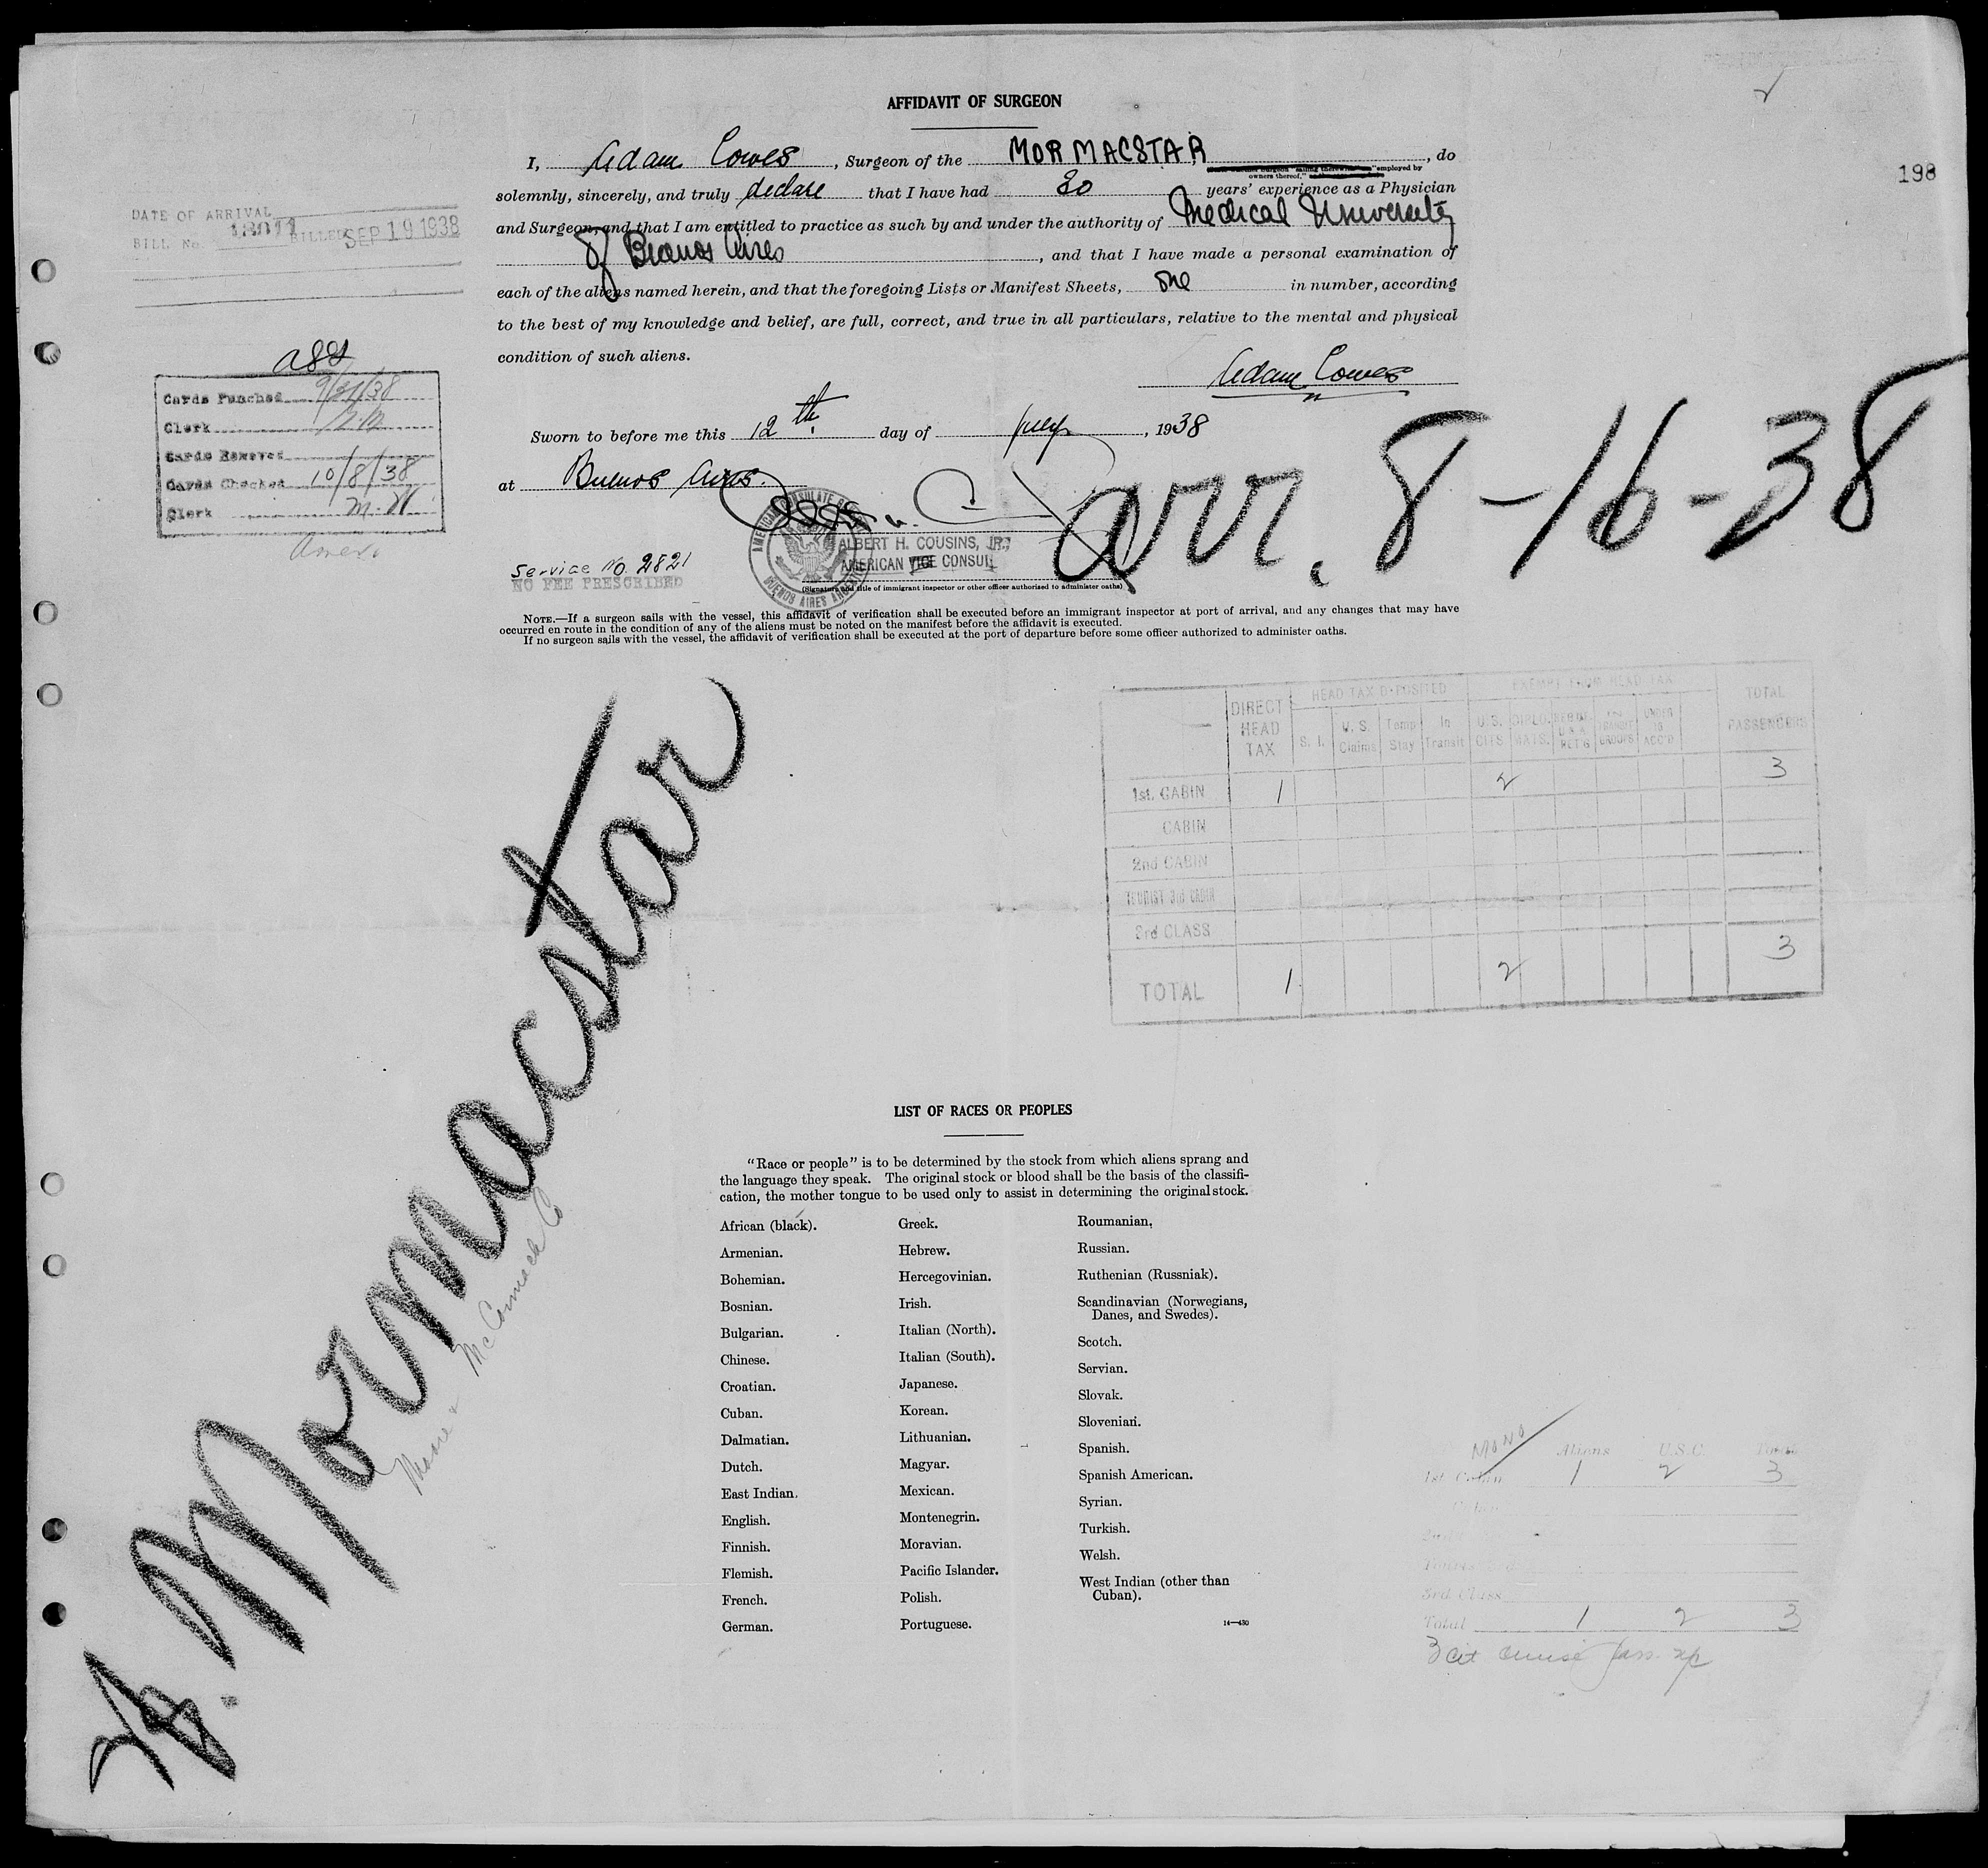 AFFIDAVIT OF SURGEON
198
I, Adam Cowes, Surgeon of the MORMACSTAR, do
owners thereof," "employed by
solemnly, sincerely, and truly declare that I have had 30 years' experience as a Physician
and Surgeon, and that I am entitled to practice as such by and under the authority of Medical University
of Buenos Aires, and that I have made a personal examination of
each of the aliens named herein, and that the foregoing Lists or Manifest Sheets, one in number, according
to the best of my knowledge and belief, are full, correct, and true in all particulars, relative to the mental and physical
condition of such aliens.
Adam Cowes
Sworn to before me this 12th day of July, 1938
at Buenos Aires.
AMERICAN CONSULATE
BUENOS AIRES
ALBERT H. COUSINS, JR.,
AMERICAN VICE CONSUL
(Signature and title of immigrant inspector or other officer authorized to administer oaths)
Service No. 2821
NO FEE PRESCRIBED
arr. 8-16-38
DATE OF ARRIVAL
BILL No. BILLED SEP 19 1938
Cards Punched 9/21/38
Clerk
Cards Removed
Cards Checked 10/8/38
Clerk
NOTE.—If a surgeon sails with the vessel, this affidavit of verification shall be executed before an immigrant inspector at port of arrival, and any changes that may have
occurred en route in the condition of any of the aliens must be noted on the manifest before the affidavit is executed.
If no surgeon sails with the vessel, the affidavit of verification shall be executed at the port of departure before some officer authorized to administer oaths.
HEAD TAX DEPOSITED EXEMPT FROM HEAD TAX
DIRECT HEAD TAX S. I. U. S. Claims Temp Stay In Transit U.S. CITS DIPLOMATS UNDER 16 ACC'D TOTAL PASSENGERS
1st. CABIN 1 2 3
CABIN
2nd CABIN
TOURIST 3rd CABIN
3rd CLASS
TOTAL 1 2 3
Mormacstar
Moore & McCormack Co
LIST OF RACES OR PEOPLES
"Race or people" is to be determined by the stock from which aliens sprang and
the language they speak. The original stock or blood shall be the basis of the classifi-
cation, the mother tongue to be used only to assist in determining the original stock.
African (black).
Armenian.
Bohemian.
Bosnian.
Bulgarian.
Chinese.
Croatian.
Cuban.
Dalmatian.
Dutch.
East Indian.
English.
Finnish.
Flemish.
French.
German.
Greek.
Hebrew.
Hercegovinian.
Irish.
Italian (North).
Italian (South).
Japanese.
Korean.
Lithuanian.
Magyar.
Mexican.
Montenegrin.
Moravian.
Pacific Islander.
Polish.
Portuguese.
Roumanian.
Russian.
Ruthenian (Russniak).
Scandinavian (Norwegians,
Danes, and Swedes).
Scotch.
Servian.
Slovak.
Slovenian.
Spanish.
Spanish American.
Syrian.
Turkish.
Welsh.
West Indian (other than
Cuban).
14—430
Aliens U.S.C. Total
1st Cabin 1 2 3
3rd Class
Total 1 2 3